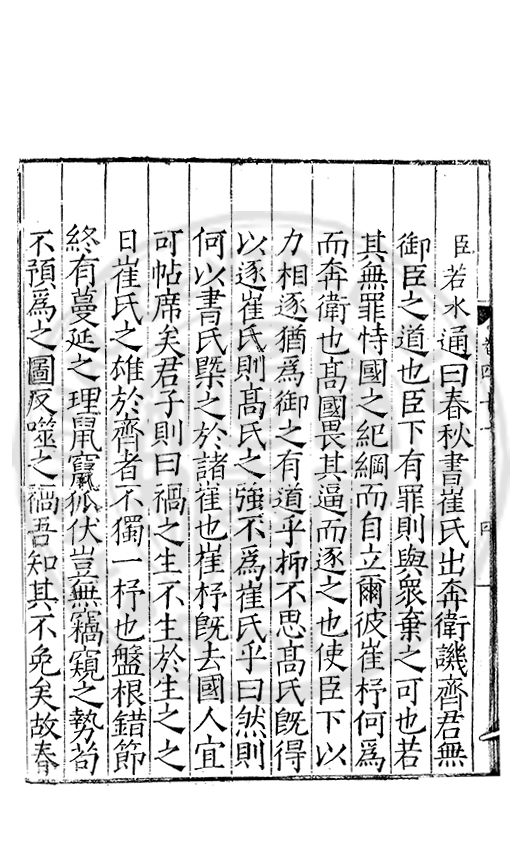 臣若水通曰春秋書崔氏出奔衛譏齊君無
御臣之道也臣下有罪則與衆棄之可也若
其無罪恃國之紀綱而自立爾彼崔杼何爲
而奔衛也髙國畏其逼而逐之也使臣下以
力相逐猶爲御之有道乎抑不思髙氏旣得
以逐崔氏則髙氏之強不爲崔氏乎曰然則
何以書氏槩之於諸崔也崔杼旣去國人宜
可帖席矣君子則曰禍之生不生於生之之
日崔氏之雄於齊者不獨一杼也盤根錯節
終有蔓延之理鼠竄狐伏豈無竊窺之勢茍
不預爲之圖反噬之禍吾知其不免矣故春